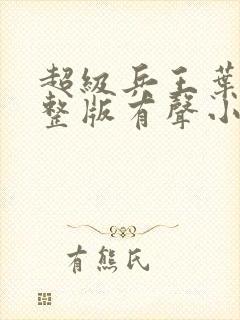 超級兵王葉
整版有聲小
有熊氏